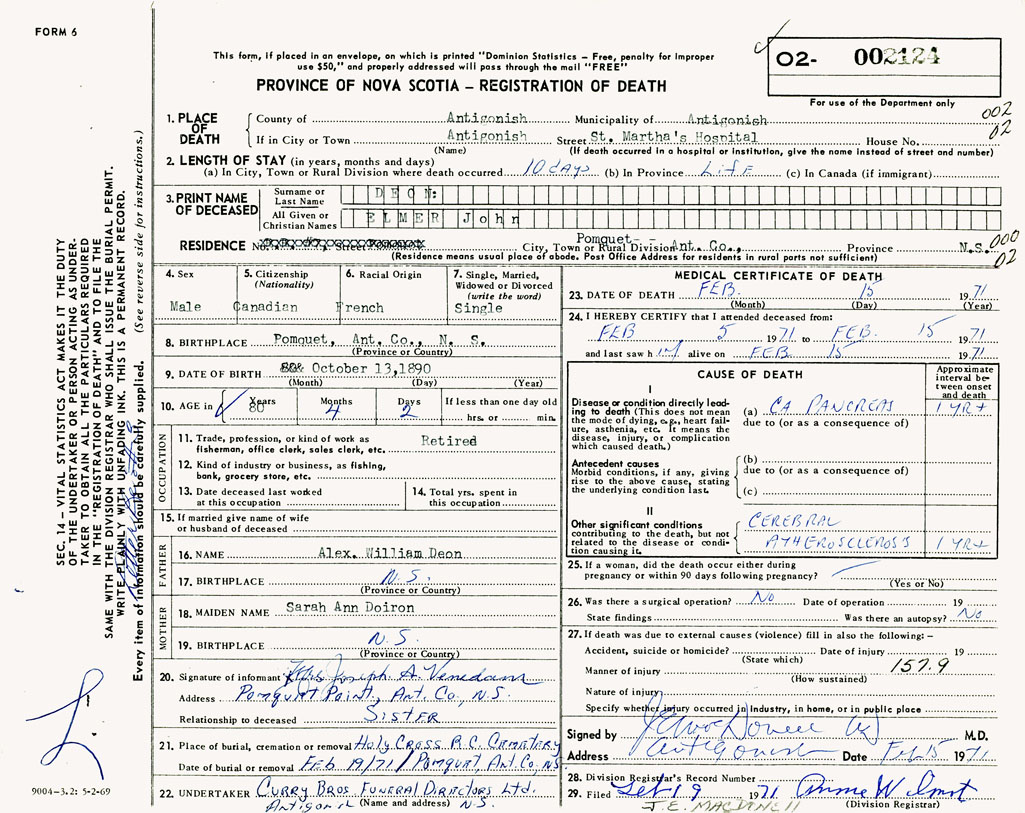 FORM 6
This form, if placed in an envelope, on which is printed "Dominion Statistics – Free, penalty for improper
use $50," and properly addressed will pass through the mail "FREE"
PROVINCE OF NOVA SCOTIA – REGISTRATION OF DEATH
O2- 002124
For use of the Department only
002
02
1. PLACE OF DEATH
County of Antigonish Municipality of Antigonish
If in City or Town Antigonish Street St. Martha's Hospital House No.
(Name) (If death occurred in a hospital or institution, give the name instead of street and number)
2. LENGTH OF STAY (in years, months and days)
(a) In City, Town or Rural Division where death occurred 10 days (b) In Province Life (c) In Canada (if immigrant)
3. PRINT NAME OF DECEASED
Surname or Last Name DEON:
All Given or Christian Names ELMER John
RESIDENCE City, Town or Rural Division Pomquet- - Ant. Co., Province N.S.
000
02
(Residence means usual place of abode. Post Office Address for residents in rural parts not sufficient)
4. Sex
Male
5. Citizenship
(Nationality)
Canadian
6. Racial Origin
French
7. Single, Married,
Widowed or Divorced
(write the word)
Single
8. BIRTHPLACE Pomquet, Ant. Co., N. S.
(Province or Country)
9. DATE OF BIRTH October 13,1890
(Month) (Day) (Year)
10. AGE in Years 80 Months 4 Days 2 If less than one day old
hrs. or min.
OCCUPATION
11. Trade, profession, or kind of work as
fisherman, office clerk, sales clerk, etc. Retired
12. Kind of industry or business, as fishing,
bank, grocery store, etc.
13. Date deceased last worked
at this occupation
14. Total yrs. spent in
this occupation
15. If married give name of wife
or husband of deceased
FATHER
16. NAME Alex. William Deon
17. BIRTHPLACE N.S.
(Province or Country)
MOTHER
18. MAIDEN NAME Sarah Ann Doiron
19. BIRTHPLACE N.S.
(Province or Country)
20. Signature of informant Mrs Joseph A. Venedam
Address Pomquet Point, Ant. Co, N.S.
Relationship to deceased SISTER
21. Place of burial, cremation or removal Holy Cross R.C. Cemetery
Date of burial or removal FEB 19/71 / Pomquet, Ant. Co, NS
22. UNDERTAKER Curry Bros Funeral Directors Ltd.
Antigonish (Name and address) N.S.
MEDICAL CERTIFICATE OF DEATH
23. DATE OF DEATH FEB. 15 1971
(Month) (Day) (Year)
24. I HEREBY CERTIFY that I attended deceased from:
FEB 5 1971 to FEB. 15 1971
and last saw him alive on FEB. 15 1971
CAUSE OF DEATH
Approximate
interval be-
tween onset
and death
I
Disease or condition directly lead-
ing to death (This does not mean
the mode of dying, e.g., heart fail-
ure, asthenia, etc. It means the
disease, injury, or complication
which caused death.)
(a) CA PANCREAS 1 YR+
due to (or as a consequence of)
Antecedent causes
Morbid conditions, if any, giving
rise to the above cause, stating
the underlying condition last.
(b)
due to (or as a consequence of)
(c)
II
Other significant conditions
contributing to the death, but not
related to the disease or condi-
tion causing it.
CEREBRAL
ATHEROSCLEROSIS 1 YR+
25. If a woman, did the death occur either during
pregnancy or within 90 days following pregnancy?
(Yes or No)
26. Was there a surgical operation? No Date of operation 19
State findings Was there an autopsy? No
27. If death was due to external causes (violence) fill in also the following:–
Accident, suicide or homicide? Date of injury 19
(State which)
Manner of injury 157.9
(How sustained)
Nature of injury
Specify whether injury occurred in industry, in home, or in public place
Signed by M.D.
Address Antigonish Date Feb 15 1971
28. Division Registrar's Record Number
29. Filed 19 1971
(Division Registrar)
J. E. MACDONELL
SEC. 14 – VITAL STATISTICS ACT MAKES IT THE DUTY
OF THE UNDERTAKER OR PERSON ACTING AS UNDER-
TAKER TO OBTAIN ALL THE PARTICULARS REQUIRED
IN THE "REGISTRATION OF DEATH" AND TO FILE THE
SAME WITH THE DIVISION REGISTRAR WHO SHALL ISSUE THE BURIAL PERMIT.
WRITE PLAINLY WITH UNFADING INK. THIS IS A PERMANENT RECORD.
Every item of information should be carefully supplied. (See reverse side for instructions.)
9004–3.2: 5-2-69